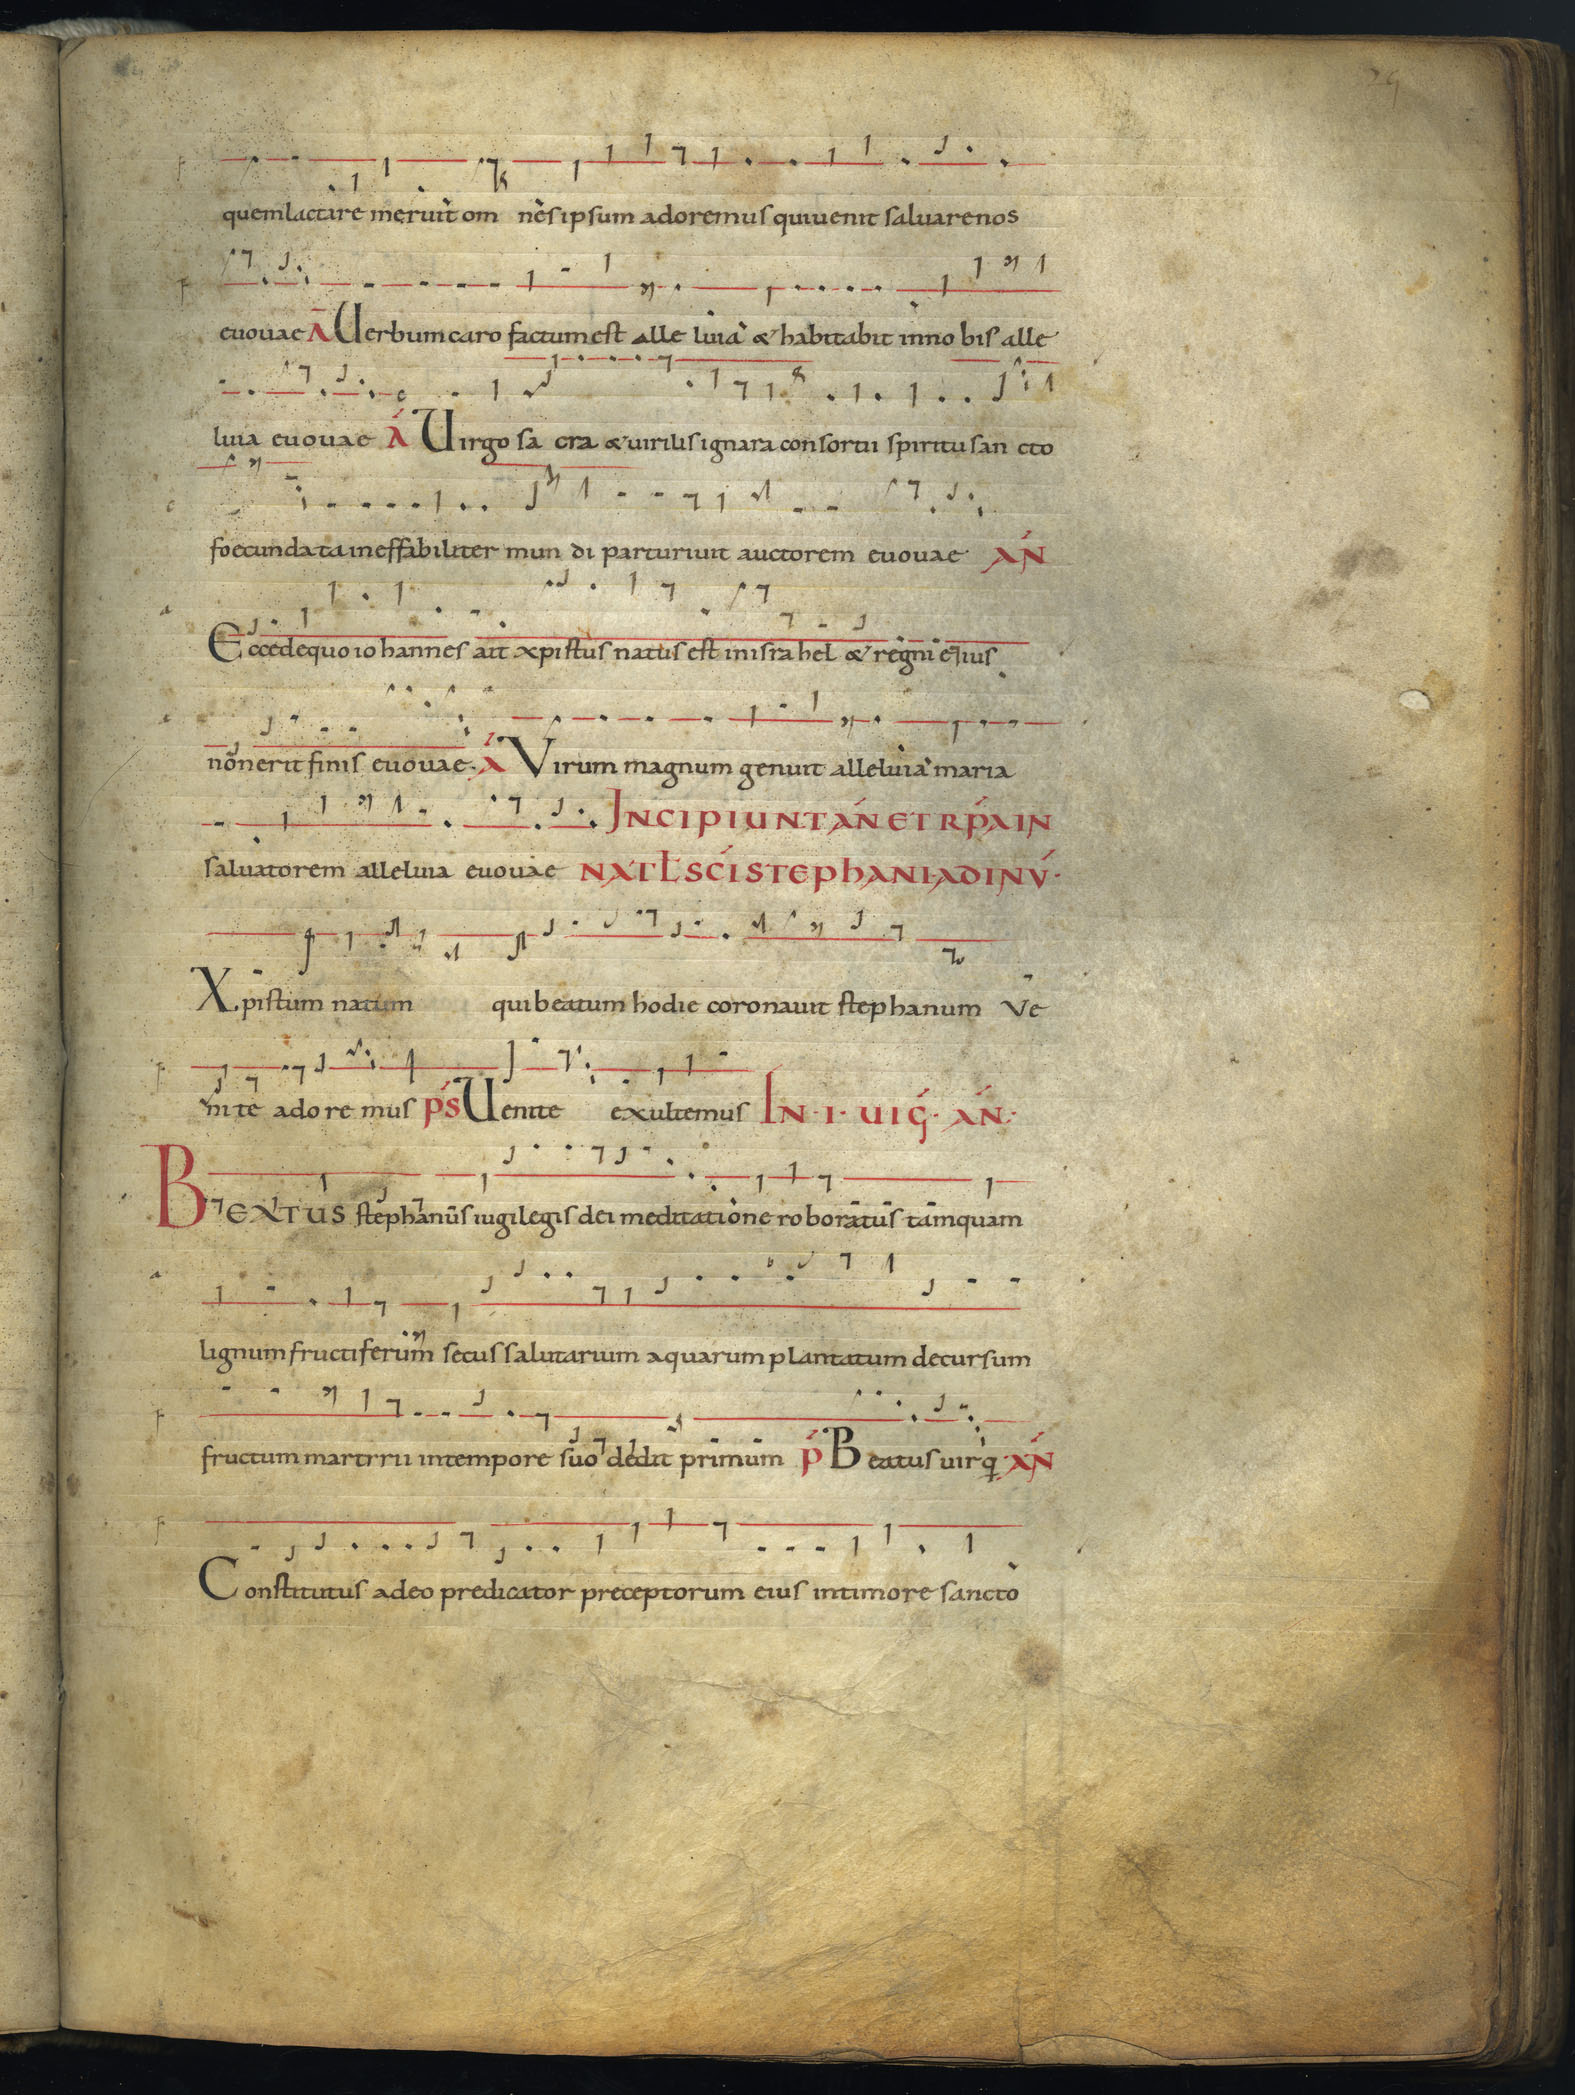 29
quem lactare meruit om nes ipsum adoremus qui uenit saluare nos
euouae A Uerbum caro factum est alle luia & habitabit in no bis alle
luia euouae A Uirgo sa cra & uirilis ignara consortii spiritu san cto
foecundata ineffabiliter mun di parturiuit auctorem euouae AN
Ecce de quo iohannes ait xpistus natus est in israhel & regni eius
non erit finis euouae. A Virum magnum genuit alleluia maria
saluatorem alleluia euouae
INCIPIUNT AN ET RP A IN
NATL SCI STEPHANI AD INV.
Xpistum natum qui beatum hodie coronauit stephanum Ve
nite adore mus PS Uenite exultemus IN .I. UIG. AN.
BEATUS stephanus iugi legis dei meditatione roboratus tamquam
lignum fructiferum secus salutarium aquarum plantatum decursum
fructum martyrii in tempore suo dedit primum P Beatus uir q AN
Constitutus a deo predicator preceptorum eius in timore sancto